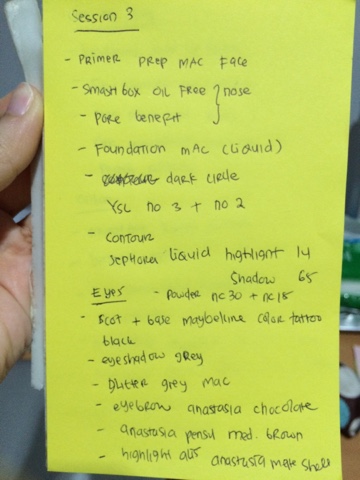 Session 3
- PRIMER PREP MAC FACE
- Smashbox OIL FREE } nose
- Pore benefit
- Foundation MAC (Liquid)
- dark circle
YSL no 3 + no 2
- Contour
Sephora liquid highlight 14
Shadow 65
Eyes - Powder nc30 + nc15
- Scot + base maybelline color tattoo
black
- eyeshadow grey
- Glitter grey mac
- eyebrow anastasia chocolate
- anastasia pensil med. brown
- highlight anastasia mate shell